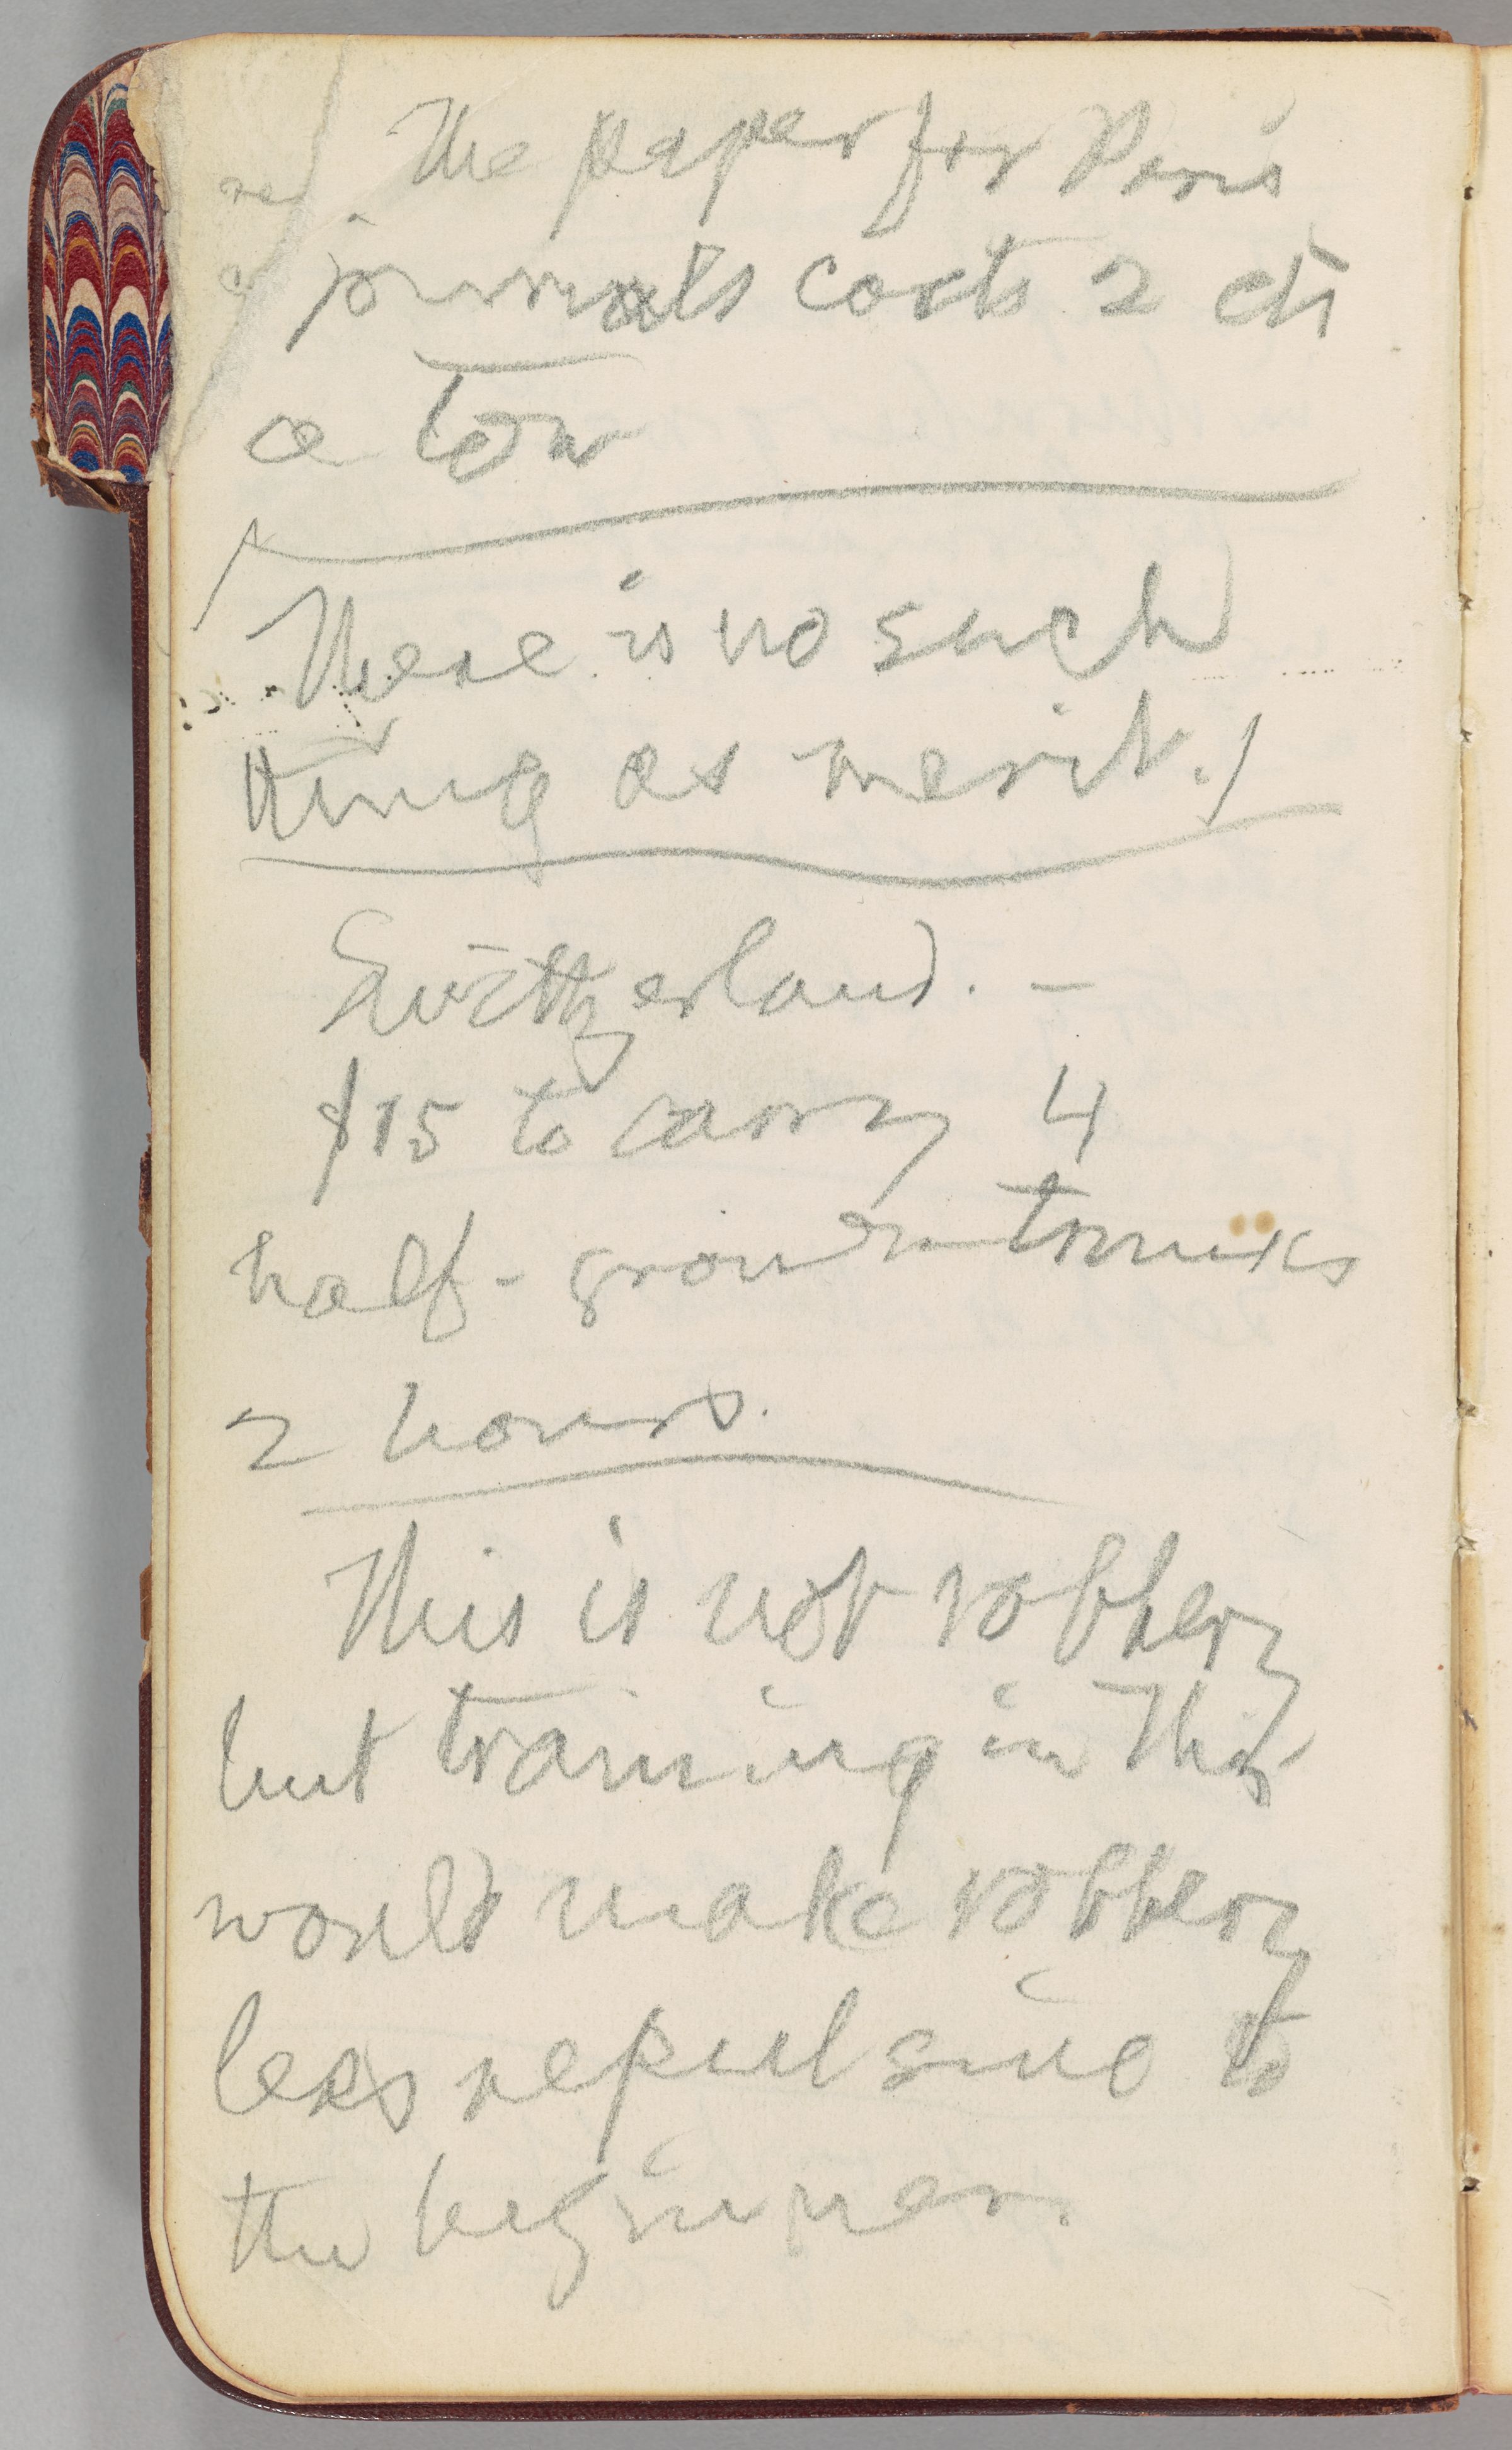 The paper for Paris
journals costs 2 cts
a ton
There is no such
thing as merit.
Switzerland. –
$15 to carry 4
half-grown trunks
2 hours.
This is not robbery
but training in this
would make robbery
less repulsive to
the beginner.